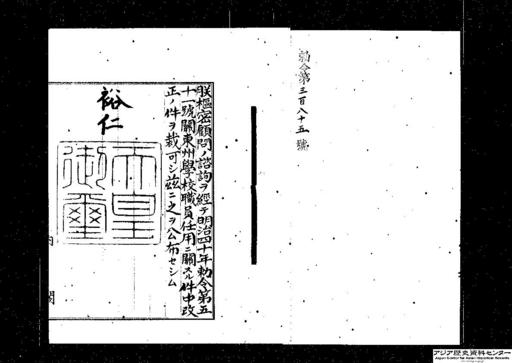 勅令第三百八十五號
朕樞密顧問ノ諮詢ヲ經テ明治四十年勅令第五
十一號關東州學校職員任用ニ關スル件中改
正ノ件ヲ裁可シ茲ニ之ヲ公布セシム
裕仁
天皇
御璽
内閣
アジア歴史資料センター
Japan Center for Asian Historical Records